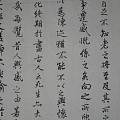 自足不知老之將至
事遷感慨係之矣向之
為陳迹猶不能不以之興懷
化終期於盡古人云死生亦大
哉每覽昔人興感之由